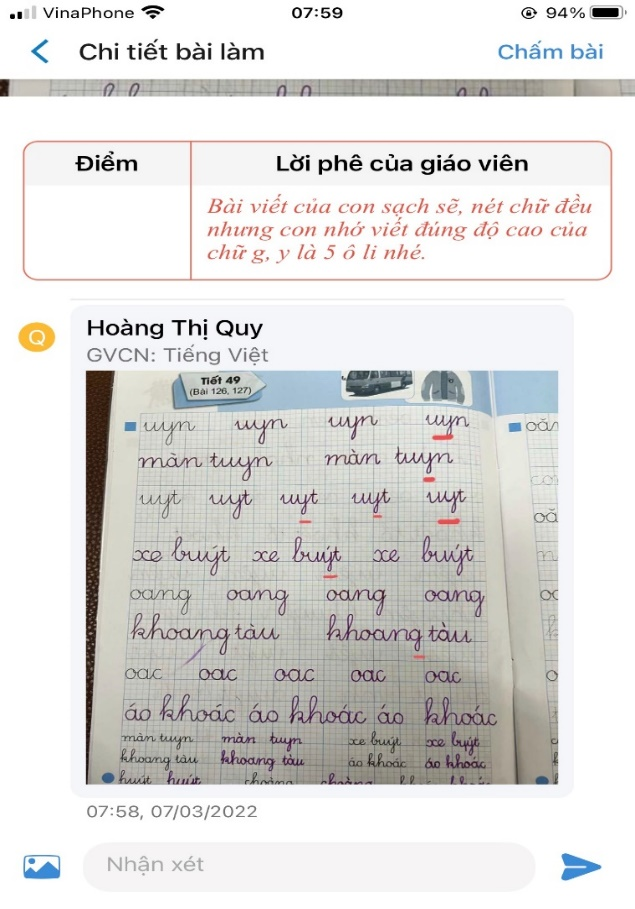 VinaPhone 07:59 94%
Chi tiết bài làm Chấm bài
Điểm Lời phê của giáo viên
Bài viết của con sạch sẽ, nét chữ đều
nhưng con nhớ viết đúng độ cao của
chữ g, y là 5 ô li nhé.
Q Hoàng Thị Quy
GVCN: Tiếng Việt
Tiết 49
(Bài 126, 127)
uyn uyn uyn uyn oăn
màn tuyn màn tuyn
uyt uyt uyt uyt uyt
xe buýt xe buýt xe buýt
oang oang oang oang
khoang tàu khoang tàu
oac oac oac oac oac
áo khoác áo khoác áo khoác
màn tuyn màn tuyn xe buýt xe buýt
khoang tàu khoang tàu áo khoác áo khoác
huýt huýt
07:58, 07/03/2022
Nhận xét